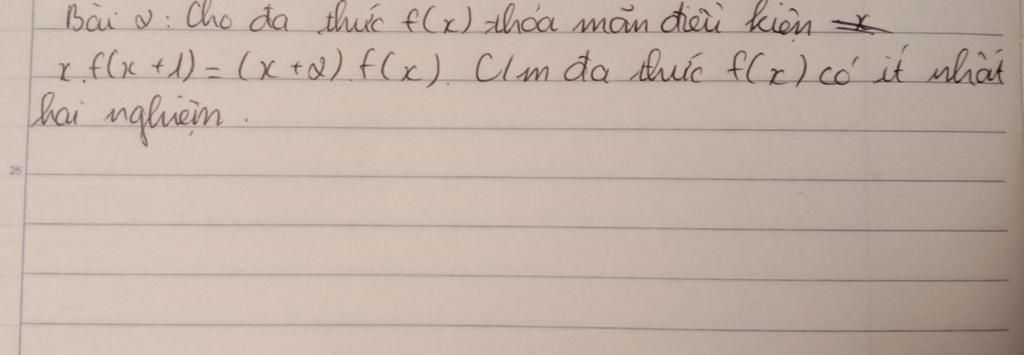 Bài 2: Cho đa thức f(x) thỏa mãn điều kiện
x.f(x+1)=(x+2).f(x). C/m đa thức f(x) có ít nhất
hai nghiệm.
25